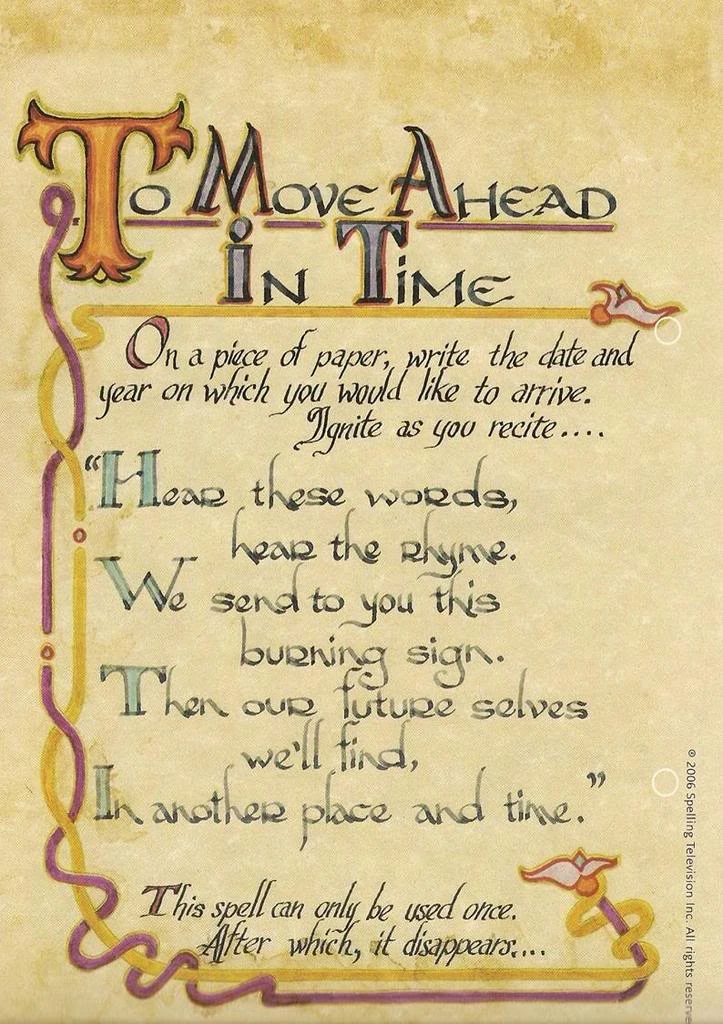 To Move Ahead
In Time
On a piece of paper, write the date and
year on which you would like to arrive.
Ignite as you recite....
“Hear these words,
hear the rhyme.
We send to you this
burning sign.
Then our future selves
we'll find,
In another place and time.”
This spell can only be used once.
After which, it disappears....
© 2006 Spelling Television Inc. All rights reserve